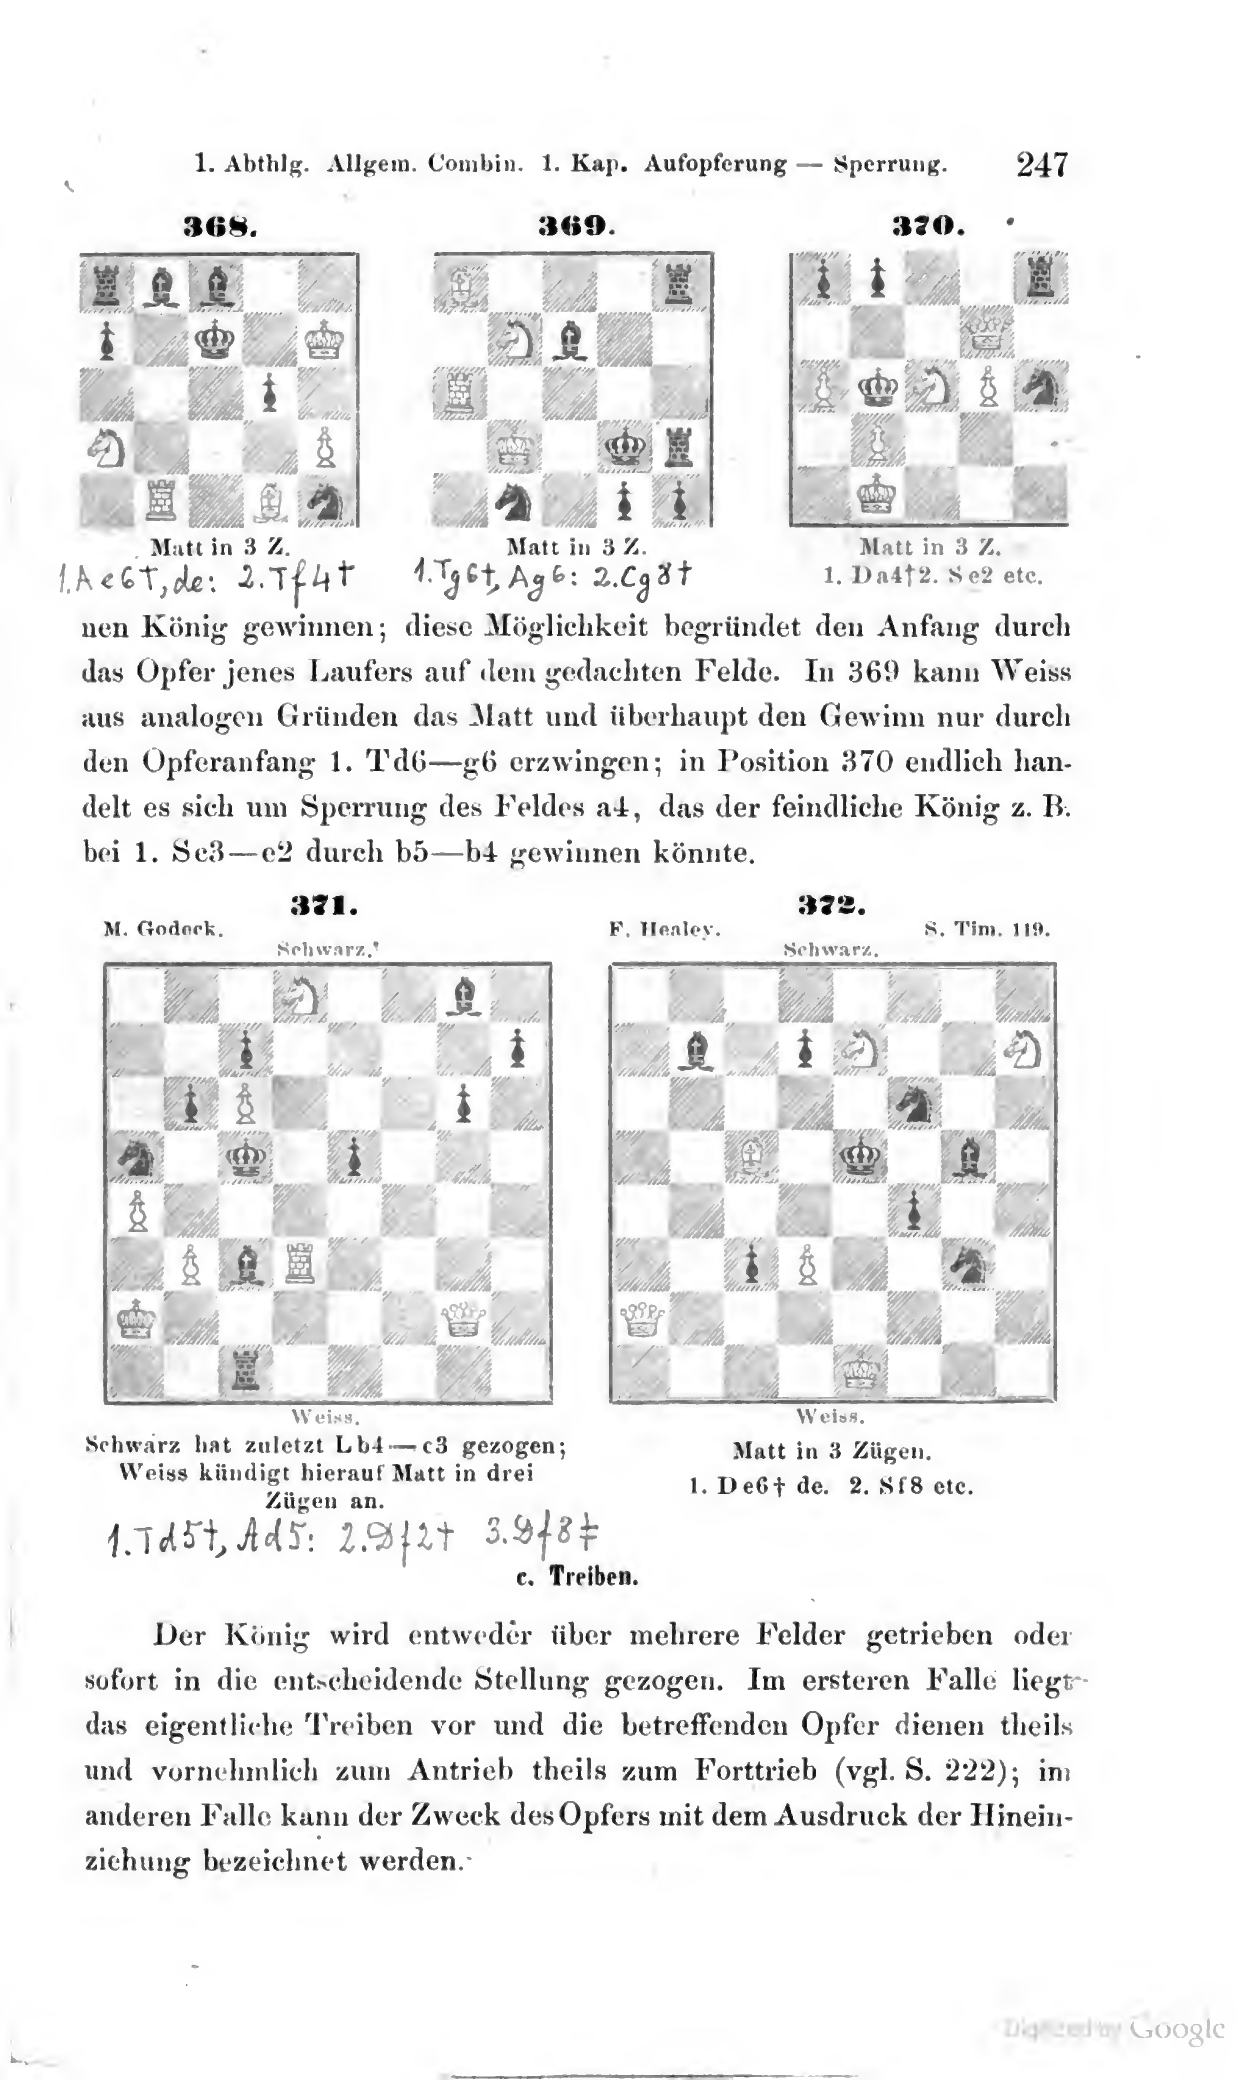 1. Abthlg. Allgem. Combin. 1. Kap. Aufopferung — Sperrung. 247
368. 369. 370.
Matt in 3 Z. Matt in 3 Z. Matt in 3 Z.
1.Ae6†, de: 2.Tf4† 1.Tg6†, Ag6: 2.Cg8† 1. Da4† 2. Se2 etc.
nen König gewinnen; diese Möglichkeit begründet den Anfang durch
das Opfer jenes Laufers auf dem gedachten Felde. In 369 kann Weiss
aus analogen Gründen das Matt und überhaupt den Gewinn nur durch
den Opferanfang 1. Td6—g6 erzwingen; in Position 370 endlich han-
delt es sich um Sperrung des Feldes a4, das der feindliche König z. B.
bei 1. Sc3—e2 durch b5—b4 gewinnen könnte.
371. 372.
M. Godeck. F. Healey. S. Tim. 119.
Schwarz. Schwarz.
Weiss. Weiss.
Schwarz hat zuletzt Lb4—c3 gezogen;
Weiss kündigt hierauf Matt in drei
Zügen an.
Matt in 3 Zügen.
1. De6† de. 2. Sf8 etc.
1.Td5†, Ad5: 2.Df2† 3.Df8‡
c. Treiben.
Der König wird entweder über mehrere Felder getrieben oder
sofort in die entscheidende Stellung gezogen. Im ersteren Falle liegt
das eigentliche Treiben vor und die betreffenden Opfer dienen theils
und vornehmlich zum Antrieb theils zum Forttrieb (vgl. S. 222); im
anderen Falle kann der Zweck des Opfers mit dem Ausdruck der Hinein-
ziehung bezeichnet werden.
Digitized by Google